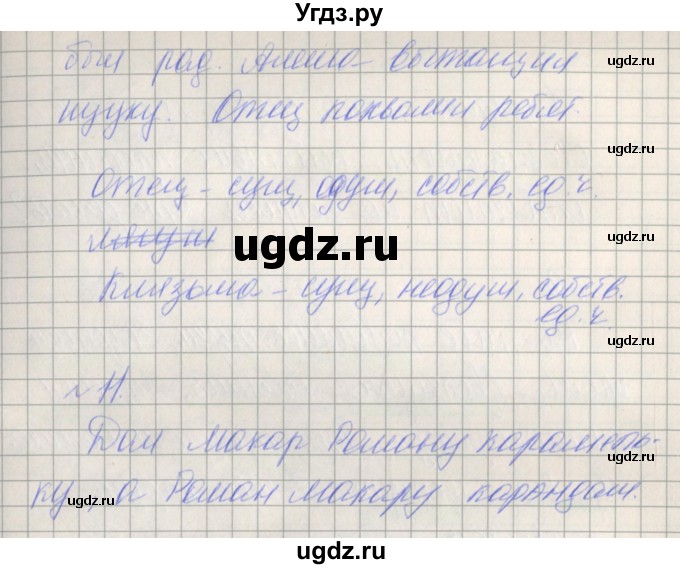 Угдз.ру
был рад. Алёша вытащил
щуку. Отец похвалил ребят.
Отец - сущ, одуш, собств. ед.ч.
Клязьма - сущ, неодуш, собств.
ед.ч.
ugdz.ru
№ 11.
Дал Макар Роману карамель-
ку, а Роман Макару карандаш.
ugdz.ru
ugdz.ru
ugdz.ru
ugdz.ru
ugdz.ru
ugdz.ru
ugdz.ru